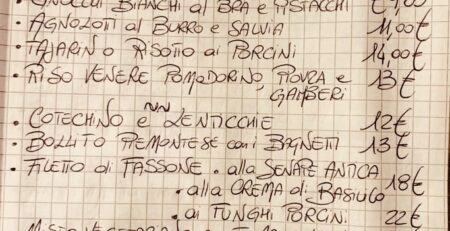 • GNOCCHI BIANCHI al BRA e PISTACCHI
• AGNOLOTI al BURRO e SALVIA 11,00€
• TAJARIN O RISOTTO ai PORCINI 14,00€
• RISO VENERE POMODORINO, PIOVRA e GAMBERI 13€
• COTECHINO e LENTICCHIE 12€
• BOLLITO PIEMONTESE con i BAGNETTI 13€
• FILETTO di FASSONE • alla SENAPE ANTICA
• alla CREMA di BASILICO 18€
• ai FUNGHI PORCINI 22€